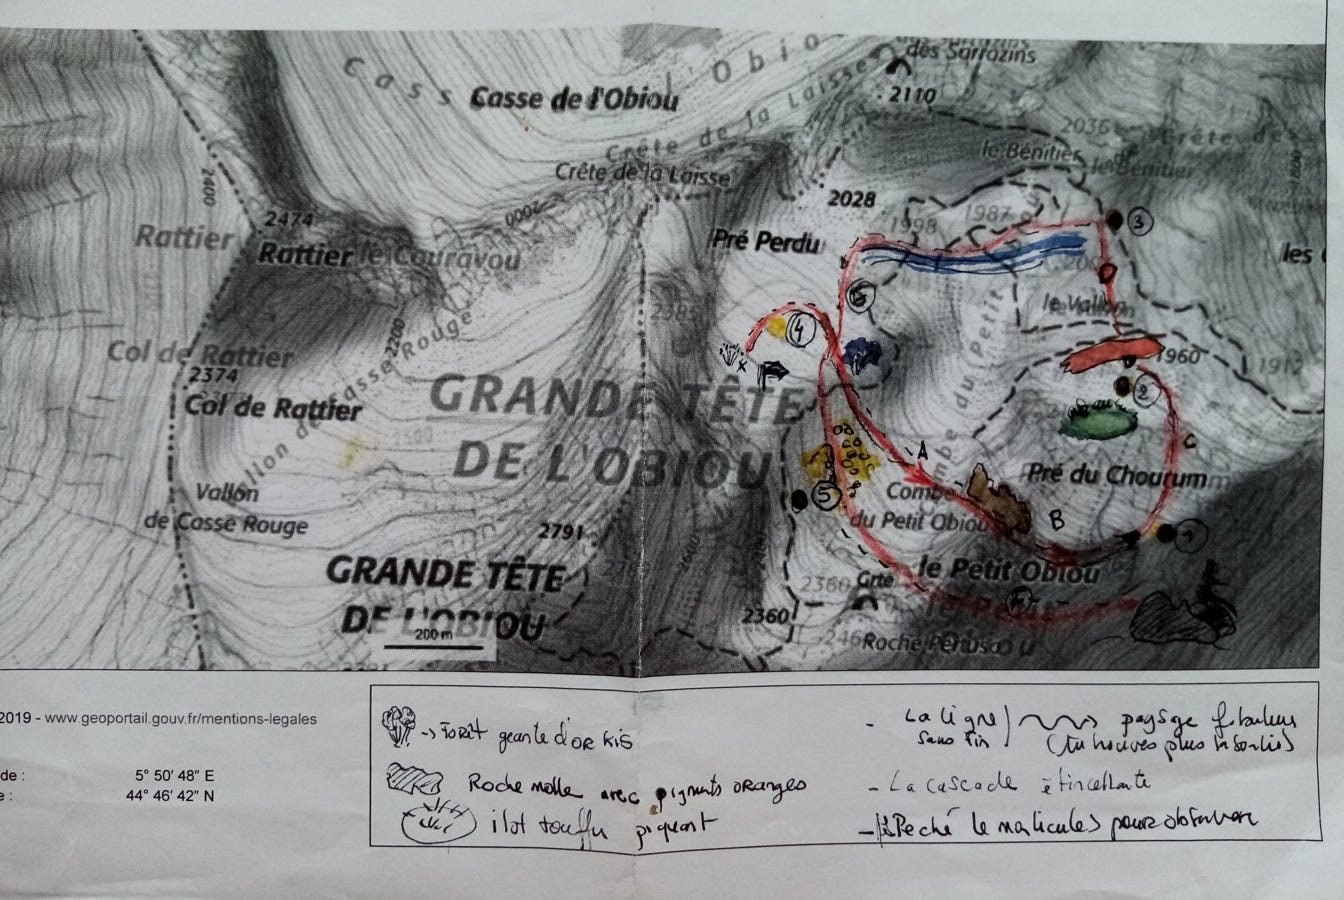 des Sarrazins
Cass
Obio
Casse de l'Obiou
2110
Crête de la Laisse
2036
Crête des
le Bénitier
le Bénitier
Crête de la Laisse
2400
2028
1998
1987
3
2474
2000
Rattier
Rattier le Couravou
Pré Perdu
les
6
le Vallon
2385
4
Col de Rattier
2200
1960
1912
2374
Col de Rattier
Vallon de Casse Rouge
GRANDE TÊTE
DE L'OBIOU
2
2500
Combe du Petit
A
C
Pré du Chourum
Vallon
de Casse Rouge
5
Combe
du Petit Obiou
B
1
2791
GRANDE TÊTE
DE L'OBIOU
200 m
2600
2360
Grte
le Petit Obiou
2360
Roche Pénuso
2019 - www.geoportail.gouv.fr/mentions-legales
de :
5° 50' 48" E
e :
44° 46' 42" N
-> Forêt geante d'or Kis
Roche molle avec pigments oranges
ilot touffu piquant
- La ligne
sans fin
paysage
- La cascade étincellante